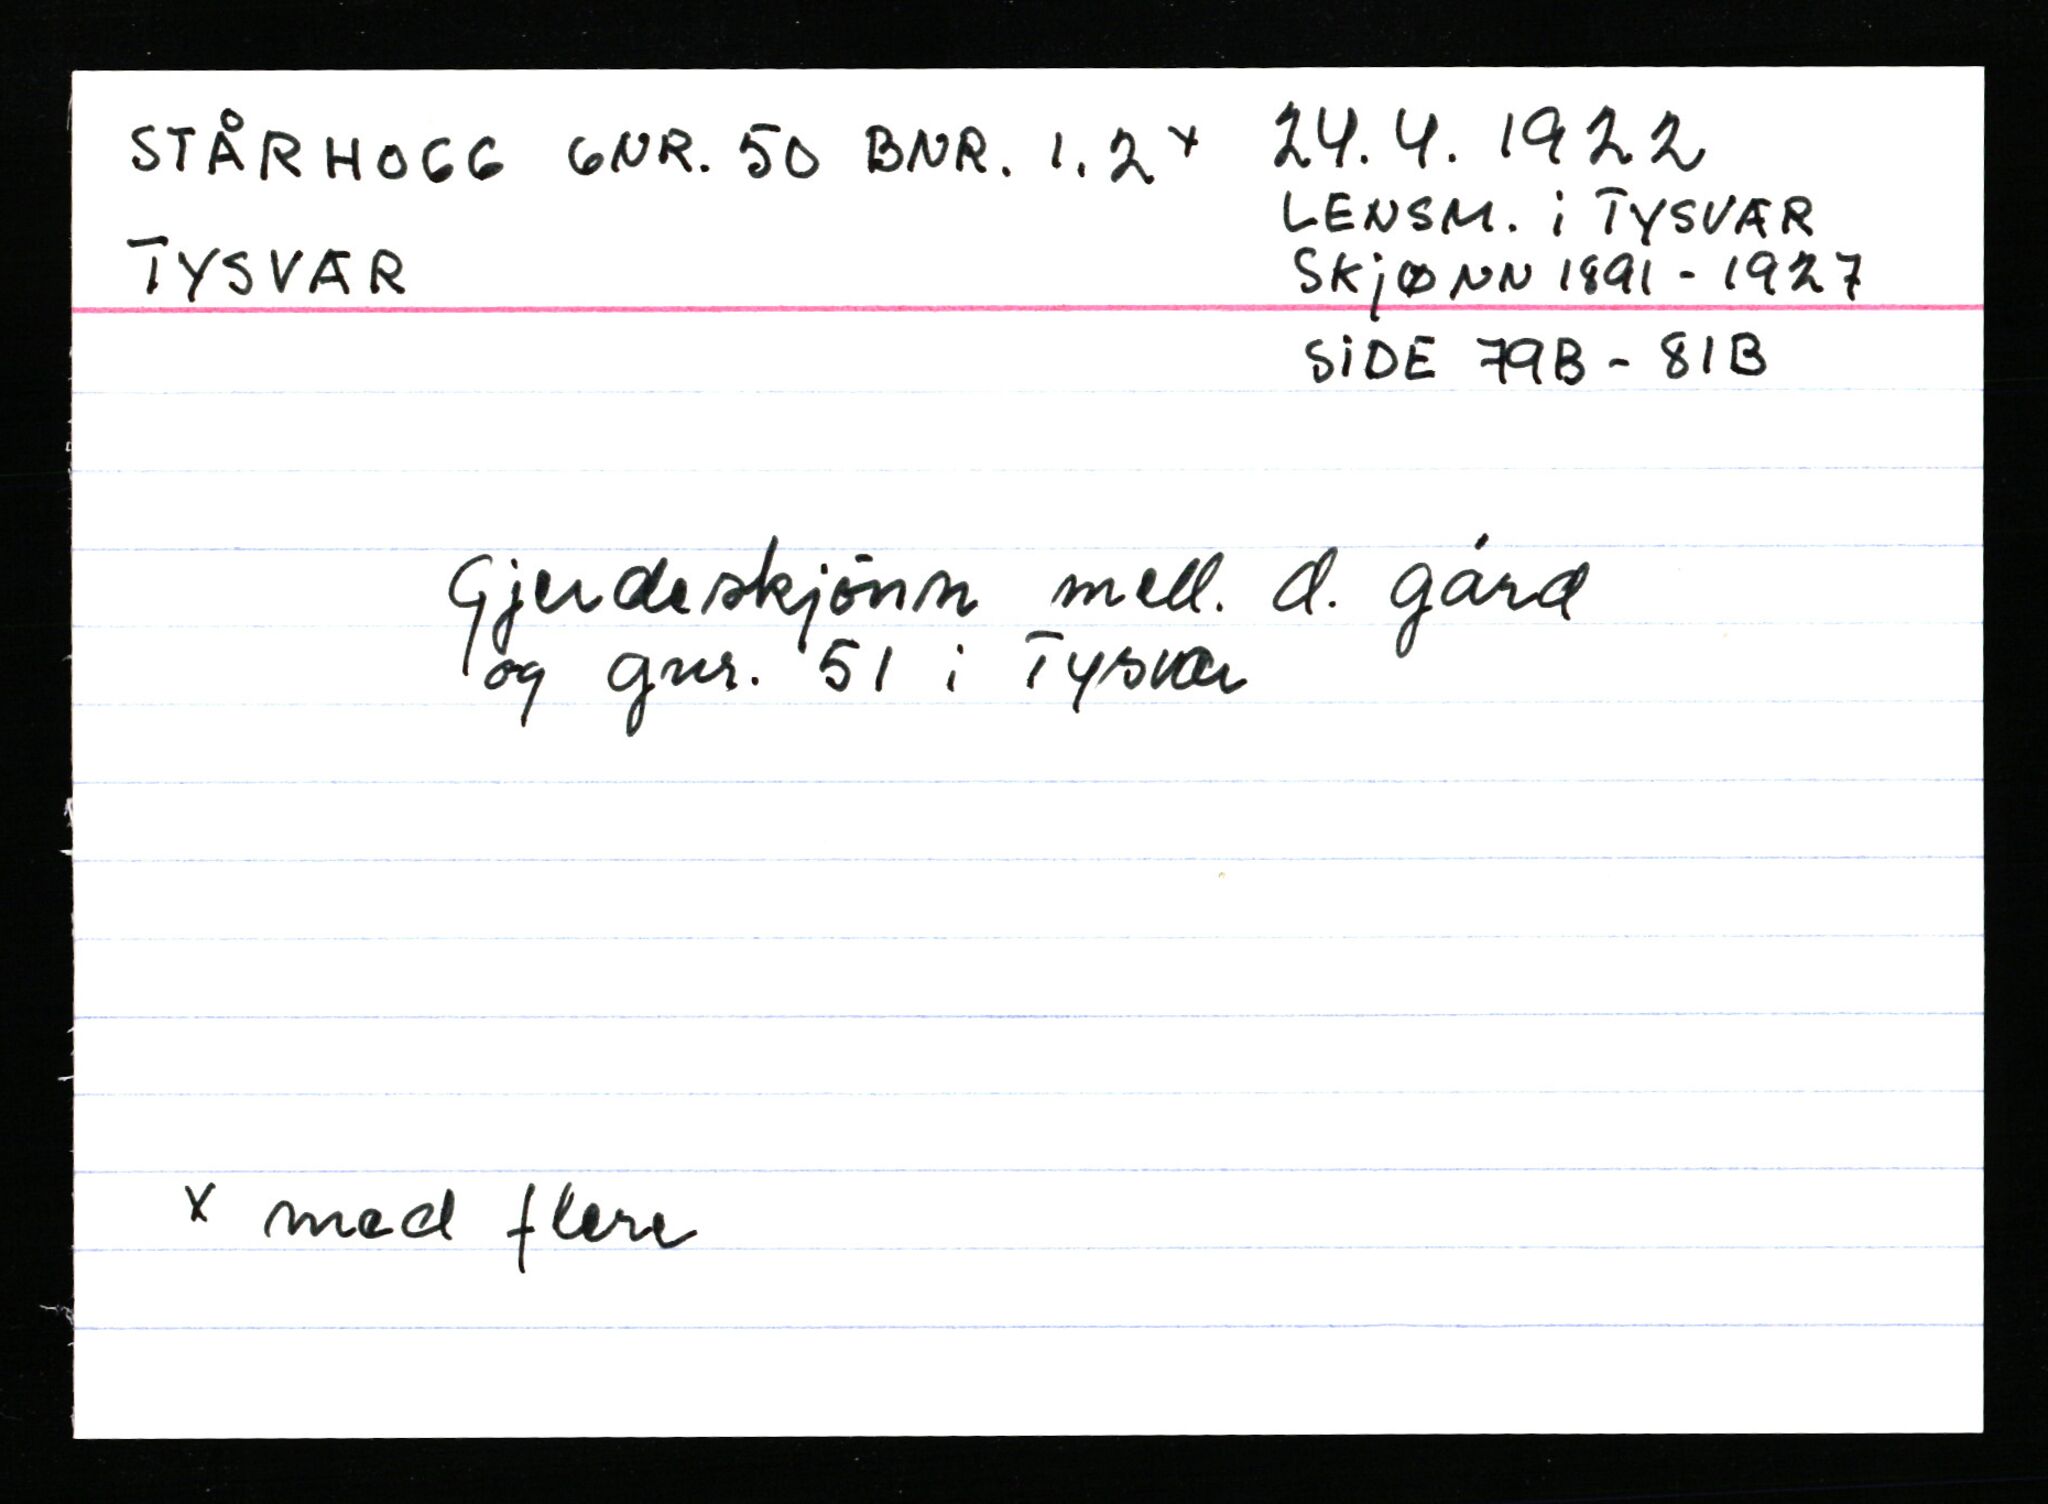 STÅRHOGG GNR. 50 BNR. 1.2 x
TYSVÆR
24.4.1922
LENSM. i TYSVÆR
SKJØNN 1891-1927
SIDE 79B - 81B
Gjerdeskjønn mell. d. gård
og gnr. 51 i Tysvær
x med flere